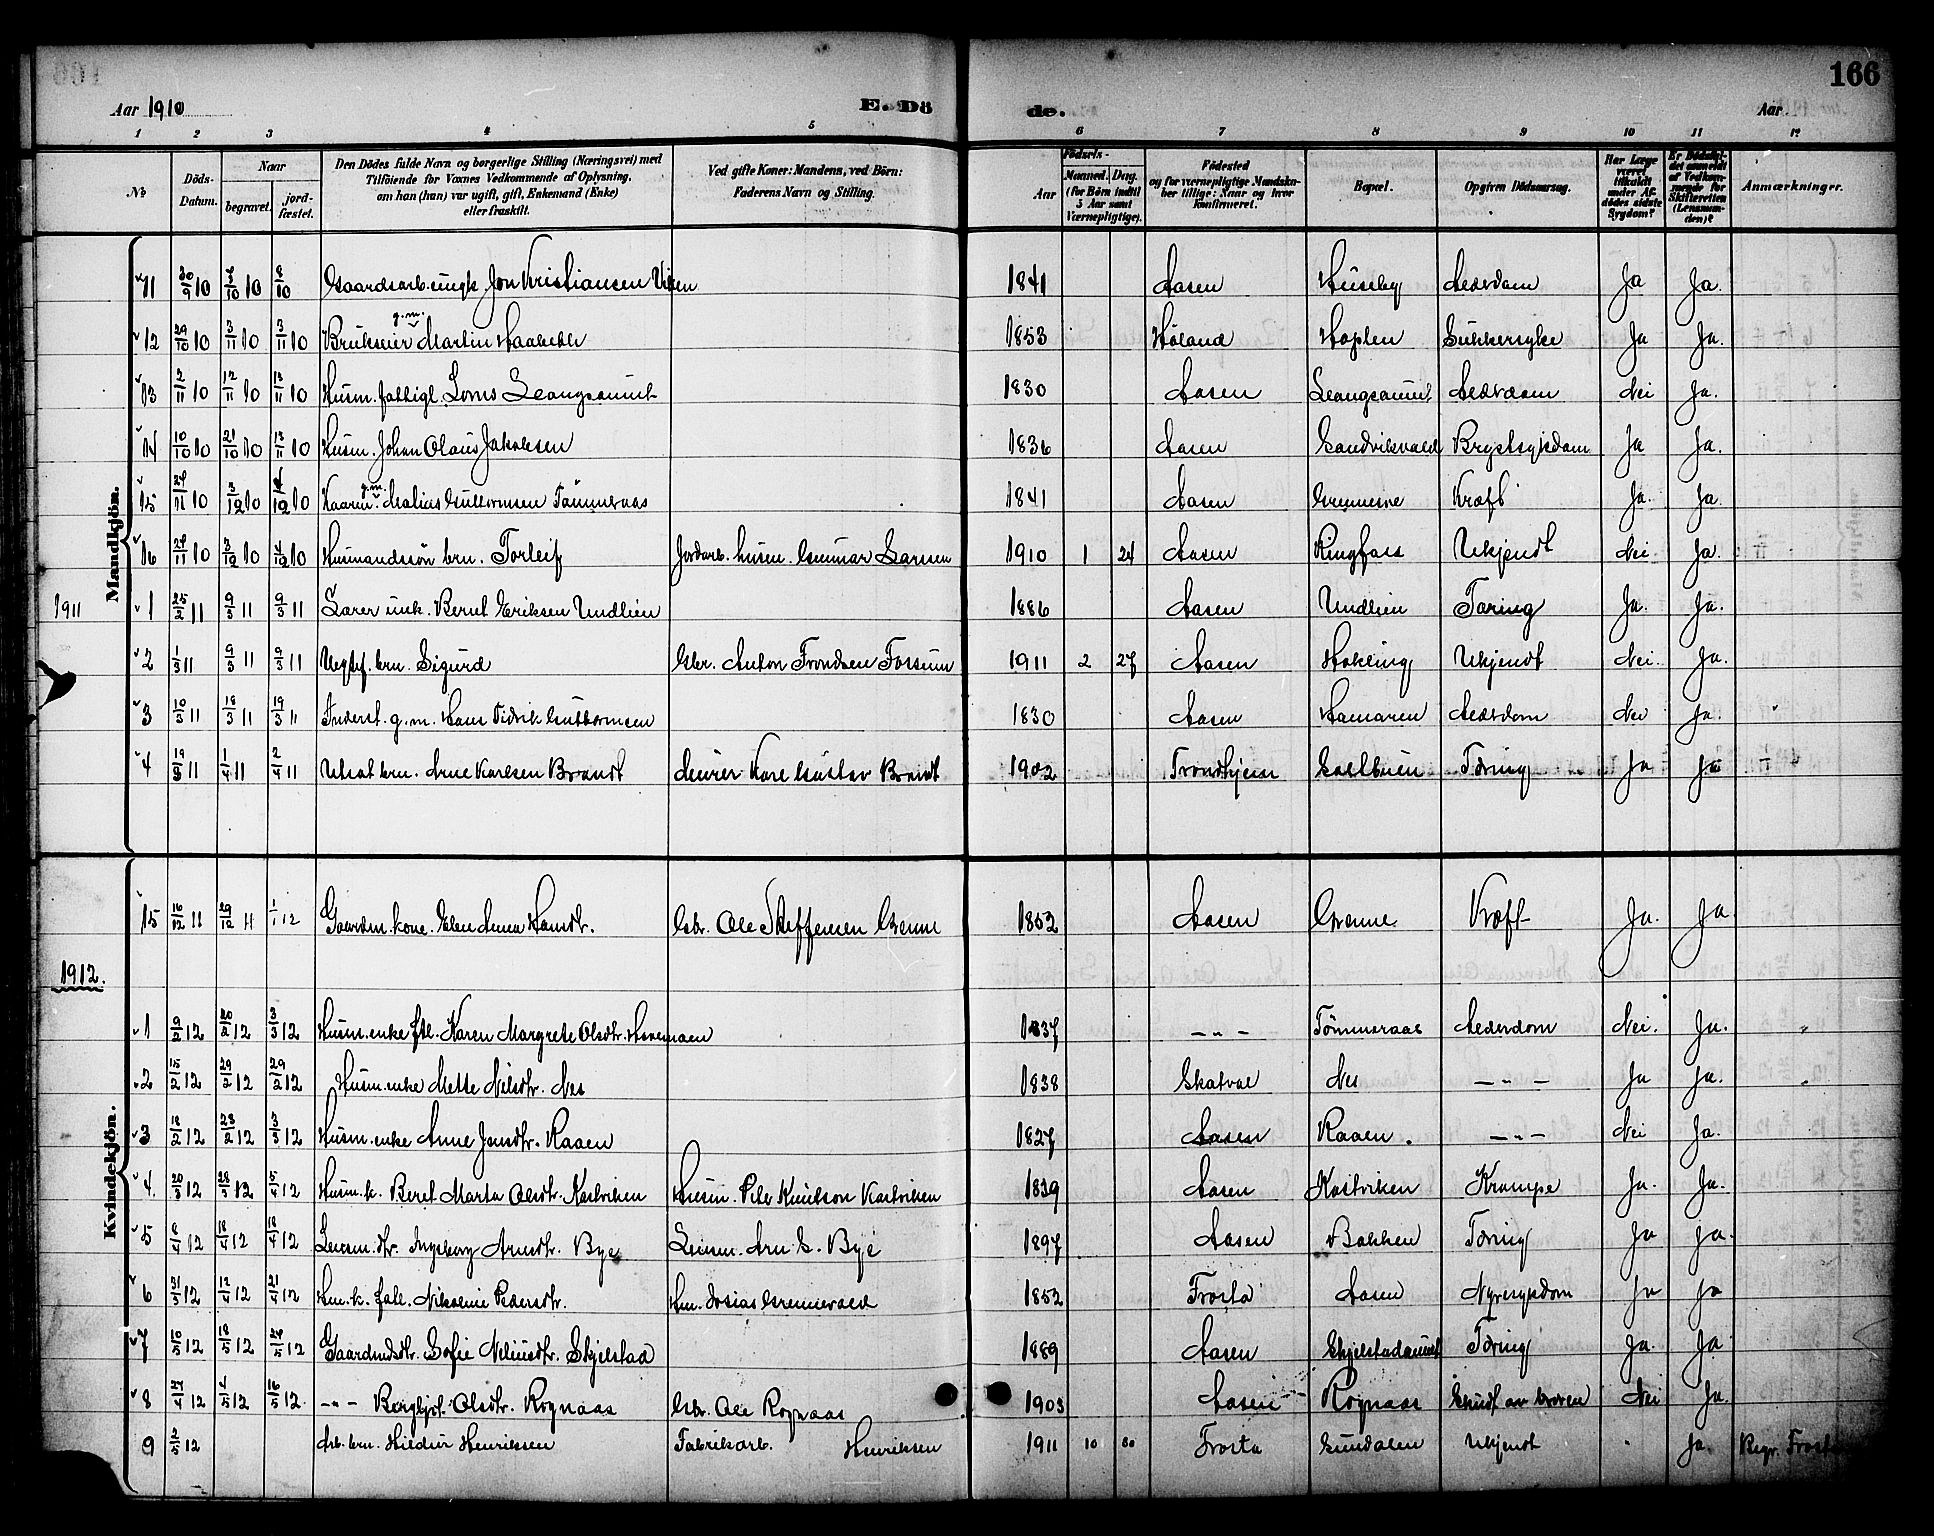 166
Aar 1910 E. Döde. Aar
1 2 3 4 5 6 7 8 9 10 11 12
No Döds-Datum. Naar begravet. jord-fæstet. Den Dödes fulde Navn og borgerlige Stilling (Næringsvei) med Tilföiende for Voxnes Vedkommende af Oplysning, om han (hun) var ugift, gift, Enkemand (Enke) eller fraskilt. Ved gifte Koner: Mandens, ved Börn: Faderens Navn og Stilling. Födsels- Aar Maaned. Dag. (for Börn indtil 5 Aar samt Værnepligtige). Födested og for værnepligtige Mandskaber tillige: Naar og hvor konfirmeret. Bopæl. Opgiven Dödsaarsag. Har Læge været tilkaldt under Afdödes sidste Sygdom? Er Dödsfaldet anmeldt af Vedkommende for Skifteretten (Lensmanden)? Anmærkninger.
Mandkjön.
11 30/9 10 7/10 10 8/10 Gaardsarb. ungk. Jon Kristiansen Viken 1841 Aasen Huseby Alderdom Ja Ja.
12 29/10 10 3/11 10 3/11 10 Brukseier g.m. Martin 1853 Høland Hoplen Sukkersyke Ja Ja.
13 2/11 10 12/11 10 13/11 10 Husm. fattigl. 1830 Aasen Alderdom Nei Ja.
14 10/10 10 21/10 10 13/11 10 Husm. Johan Olaus Jakobsen 1836 Aasen Sandviksvald Brystsykdom Ja Ja.
15 27/11 10 3/12 10 4/12 10 g.m. Guttormsen 1841 Aasen Kræft Ja. Ja.
16 27/11 10 3/12 10 4/12 10 Husmandssøn brn. Torleif Jordarb. husm. Gunnar Larsen 1910 1 24 Aasen Ringfars Ukjendt Nei Ja.
1911
1 25/2 11 9/3 11 9/3 11 Lærer unk. Bernt Eriksen Undlien 1886 Aasen Undlien Tæring Ja. Ja.
2 1/3 11 9/3 11 9/3 11 brn. Sigurd Gbr. Anton Trondsen Fossum 1911 2 27 Aasen Hokling Ukjendt Nei. Ja.
3 10/3 11 18/3 11 19/3 11 Inderst. g.m. Hans Guttormsen 1830 Aasen Hamaren Alderdom Nei Ja.
4 19/3 11 1/4 11 2/4 11 brn. Arne Karlsen Brandt Murer Karl Gustav Brandt 1902 Trondhjem Tæring Ja Ja
Kvindekjön.
15 16/12 11 29/12 11 1/1 12 Gaardm. kone. Elen Anna Hansdtr. Gbr. Ole Steffensen Grenne 1852 Aasen Grenne Kræft Ja. Ja
1912.
1 9/2 12 20/2 12 3/3 12 Husm. enke ftl. Karen Margrete Olsdtr. 1837 – „ – Tømmeraas Alderdom Nei. Ja. „
2 15/2 12 29/2 12 29/2 12 Husm. enke Mette Nilsdtr. Nes 1838 Skatval Nes – „ – Ja Ja. „
3 18/2 12 23/2 12 3/3 12 Husm. enke Anne Jonsdtr. Raaen 1827 Aasen Raaen. – „ – Nei Ja.
4. 20/3 12 28/3 12 5/4 12 Husm. k. Beret Marta Olsdtr. Kastviken Husm. Peter Knutson Kastviken 1839 Aasen Kastviken Krampe Ja. Ja.
5 8/4 12 18/4 12 18/4 12 Lensm. dtr. Ingeborg Arnsdtr. Bye Lensm. Arn G. Bye 1897 Aasen Bakken Tæring Ja Ja.
6 31/3 12 12/4 12 21/4 12 Hm. k. fatt. Nikoline Pedersdtr. Hm. Josias Grennevald 1852 Frosta Aasen Nyresykdom Ja Ja
7 10/5 12 18/5 12 24/5 12 Gaardmdtr. Sofie Skjelstad 1889 Aasen Skjelstadaunet Tæring Ja. Ja
8 27/4 12 4/5 12 16/5 12. – „ – Bergljot Olsdtr. Rognaas Gbr. Ole Rognaas 1903 Aasen Rognaas Skudt av broren Nei Ja.
9 2/5 12 Arb. brn. Hildur Henriksen Fabrikarb. Henriksen 1911 10 30 Frosta Sundalen Ukjendt „ Ja. Begr. Frosta